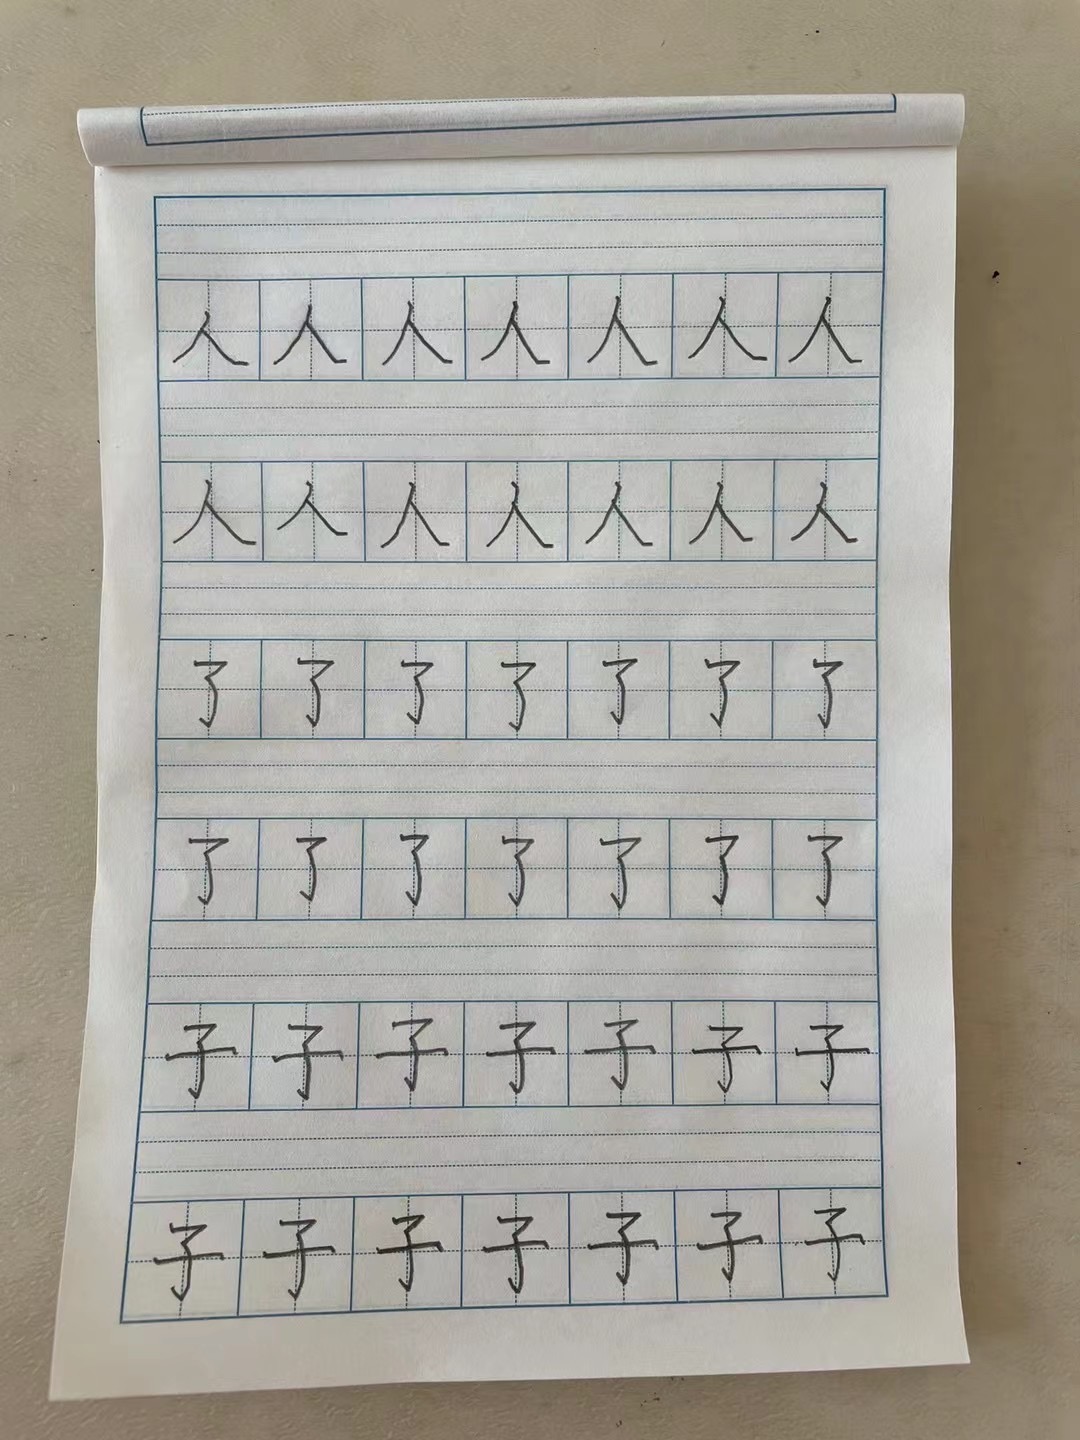 人人人人人人人
人人人人人人人
了了了了了了了
了了了了了了了
子子子子子子子
子子子子子子子